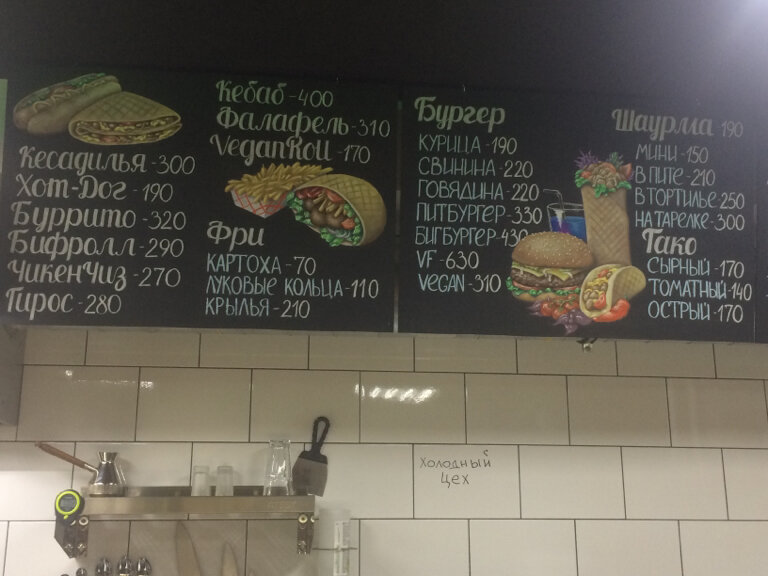 Кесадилья - 300
Хот-Дог - 190
Буррито - 320
Бифролл - 290
ЧикенЧиз - 270
Гирос - 280
Кебаб - 400
Фалафель - 310
VeganRoll - 170
Фри
КАРТОХА - 70
ЛУКОВЫЕ КОЛЬЦА - 110
КРЫЛЬЯ - 210
Бургер
КУРИЦА - 190
СВИНИНА - 220
ГОВЯДИНА - 220
ПИТБУРГЕР - 330
БИГБУРГЕР - 430
VF - 630
VEGAN - 310
Шаурма 190
МИНИ - 150
В ПИТЕ - 210
В ТОРТИЛЬЕ 250
НА ТАРЕЛКЕ - 300
Тако
СЫРНЫЙ - 170
ТОМАТНЫЙ - 140
ОСТРЫЙ - 170
ХОЛОДНЫЙ
ЦЕХ